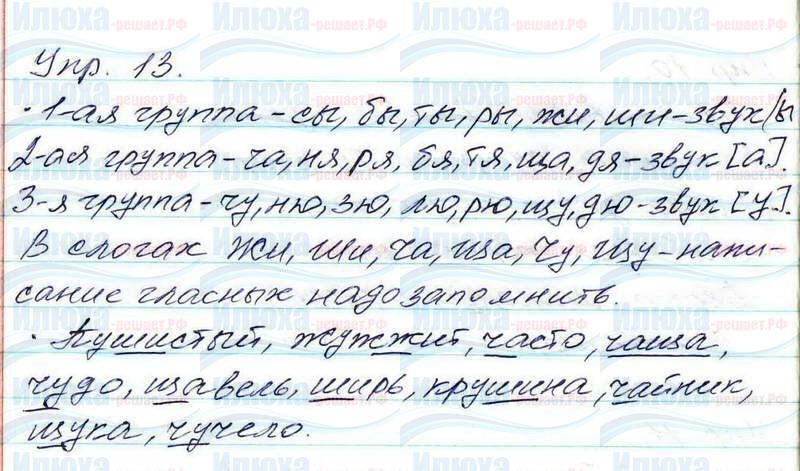 Упр. 13.
· 1-ая группа – сы, бы, ты, ры, жи, ши – звук [ы
2-ая группа – ча, ня, ря, бя, тя, ща, дя – звук [а].
3-я группа – чу, ню, зю, лю, рю, щу, дю – звук [у].
В слогах жи, ши, ча, ща, чу, щу – напи-
сание гласных надо запомнить.
· Пушистый, жужжит, часто, чаща,
чудо, щавель, ширь, крушина, чайник,
щука, чучело.